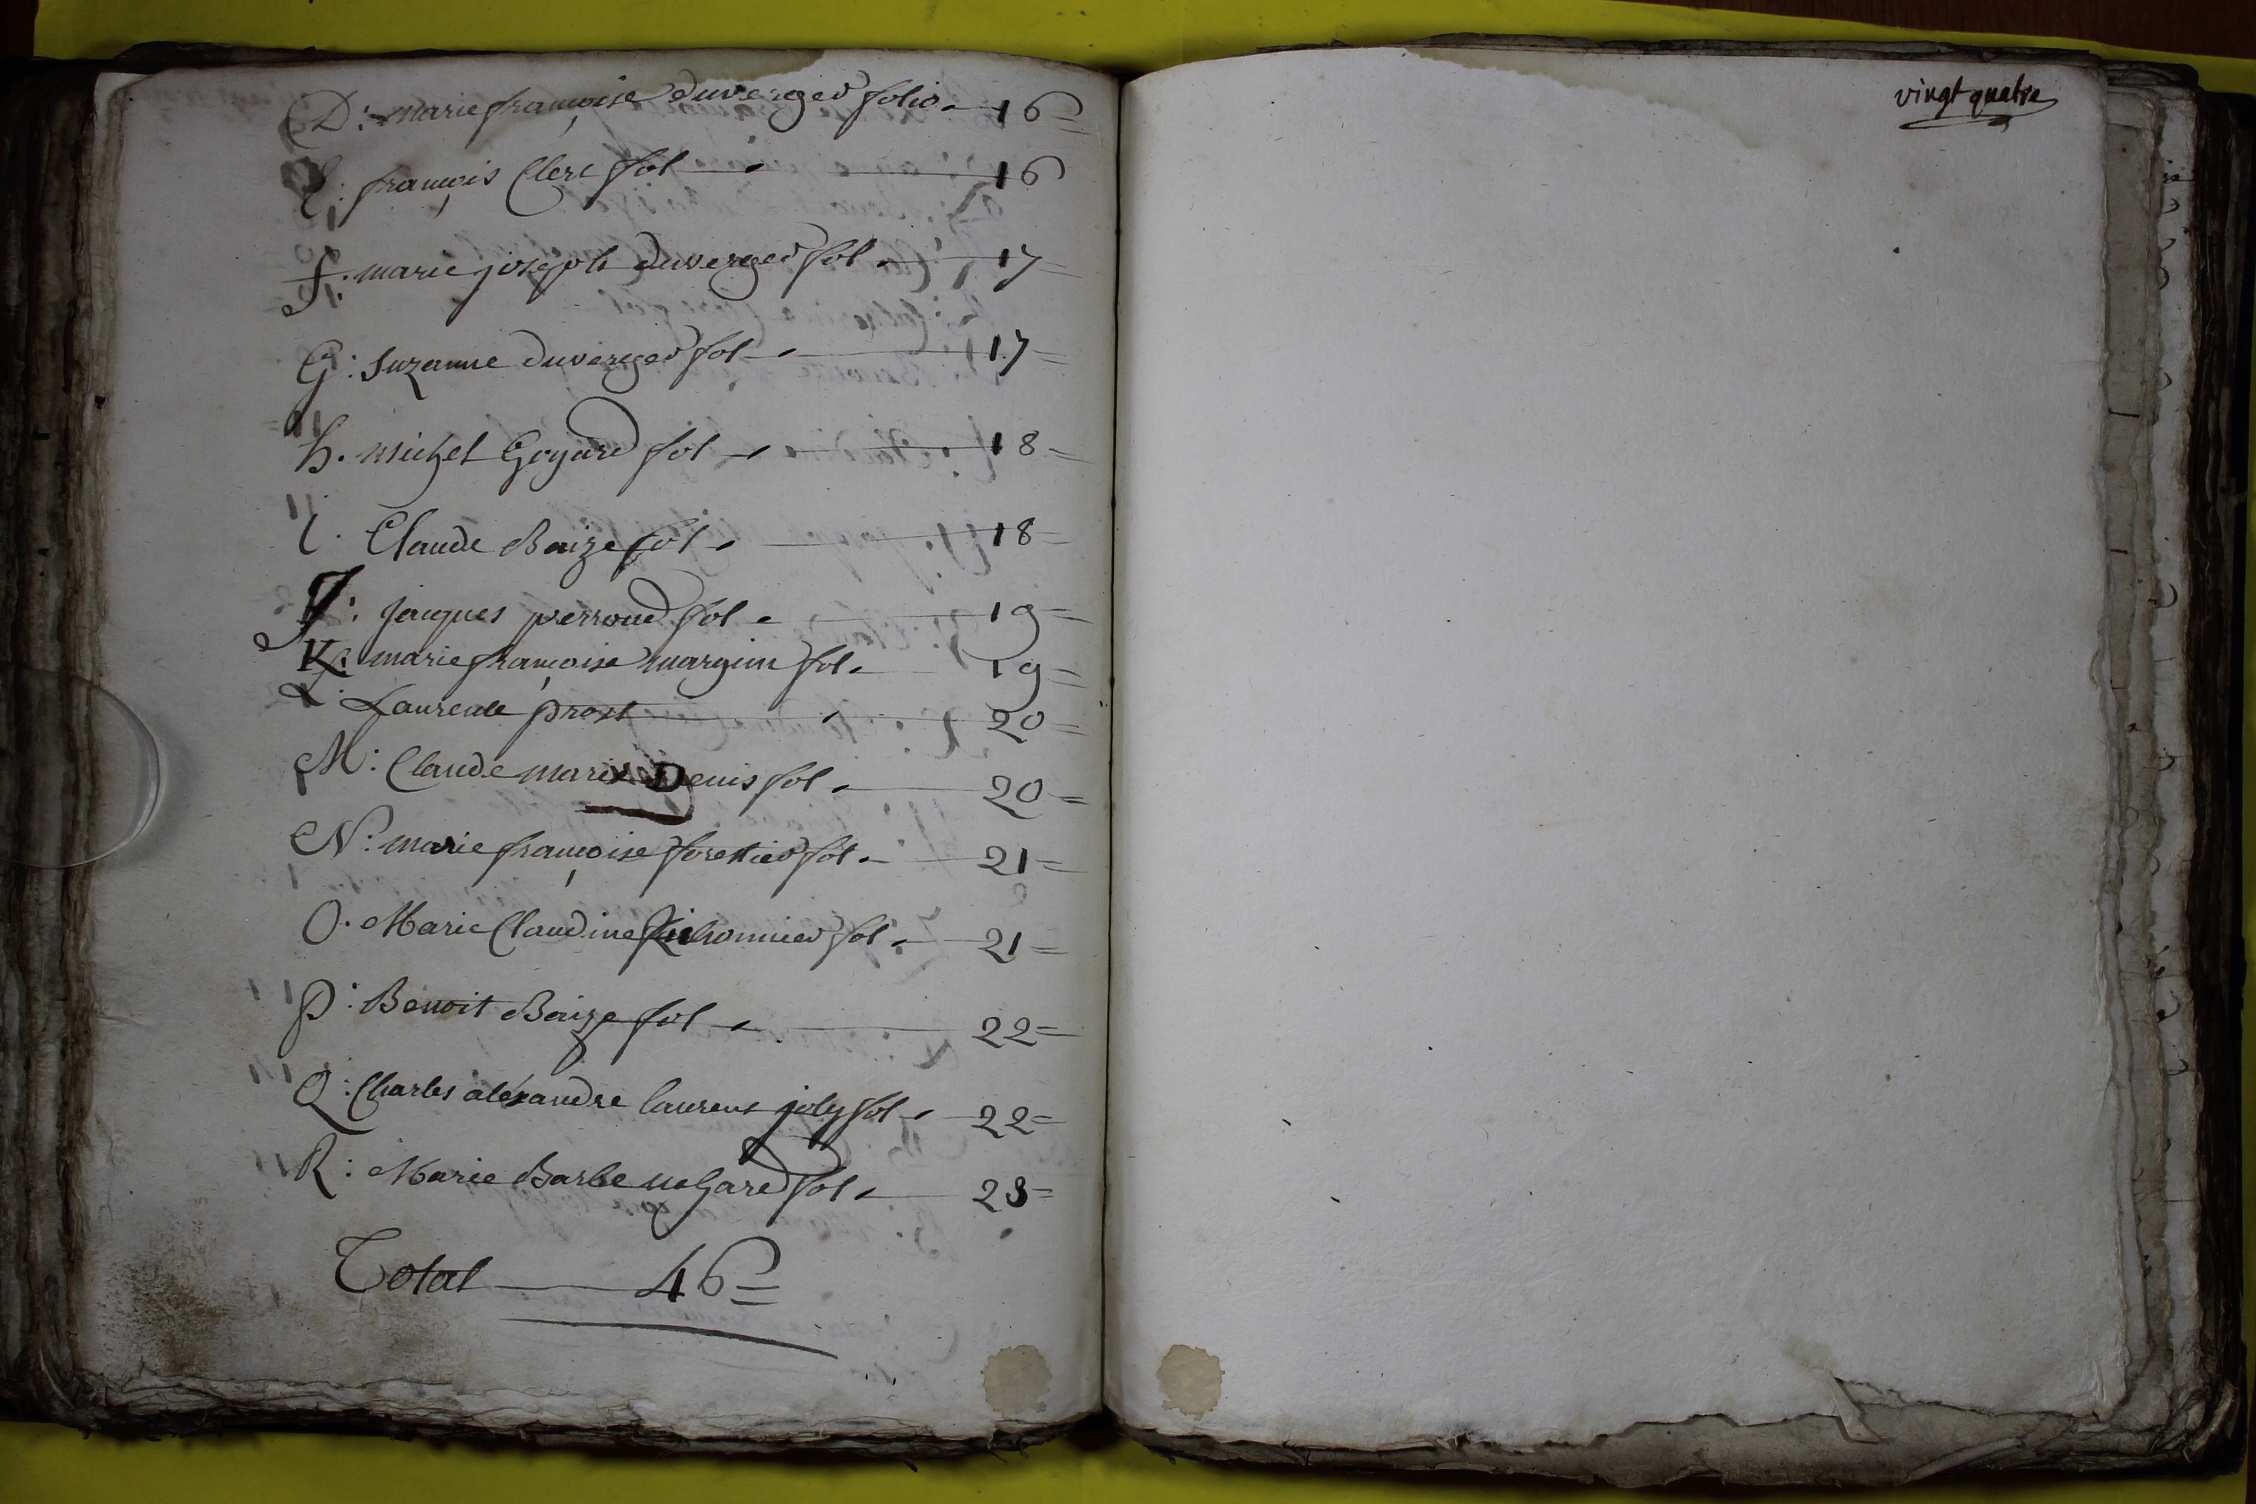 D: marie françoise duverger folio 16=
E: françois Clerc fol 16
f: marie joseph duverger fol 17=
G: Suzanne duverger fol 17=
h. michel Goyard fol 18=
i. Claude Baize fol 18=
J: jacques perroud fol 19=
K: marie françoise margün fol 19=
L. Laurende prost 20=
M: Claude marie Denis fol 20=
N: marie françoise forestier fol 21=
O. Marie Claudine fol 21=
P: Benoit Baize fol 22=
Q: Charles aléxandre laurens joly fol 22=
R: Marie Barbe fol 23=
Total 46=
vingt quatre